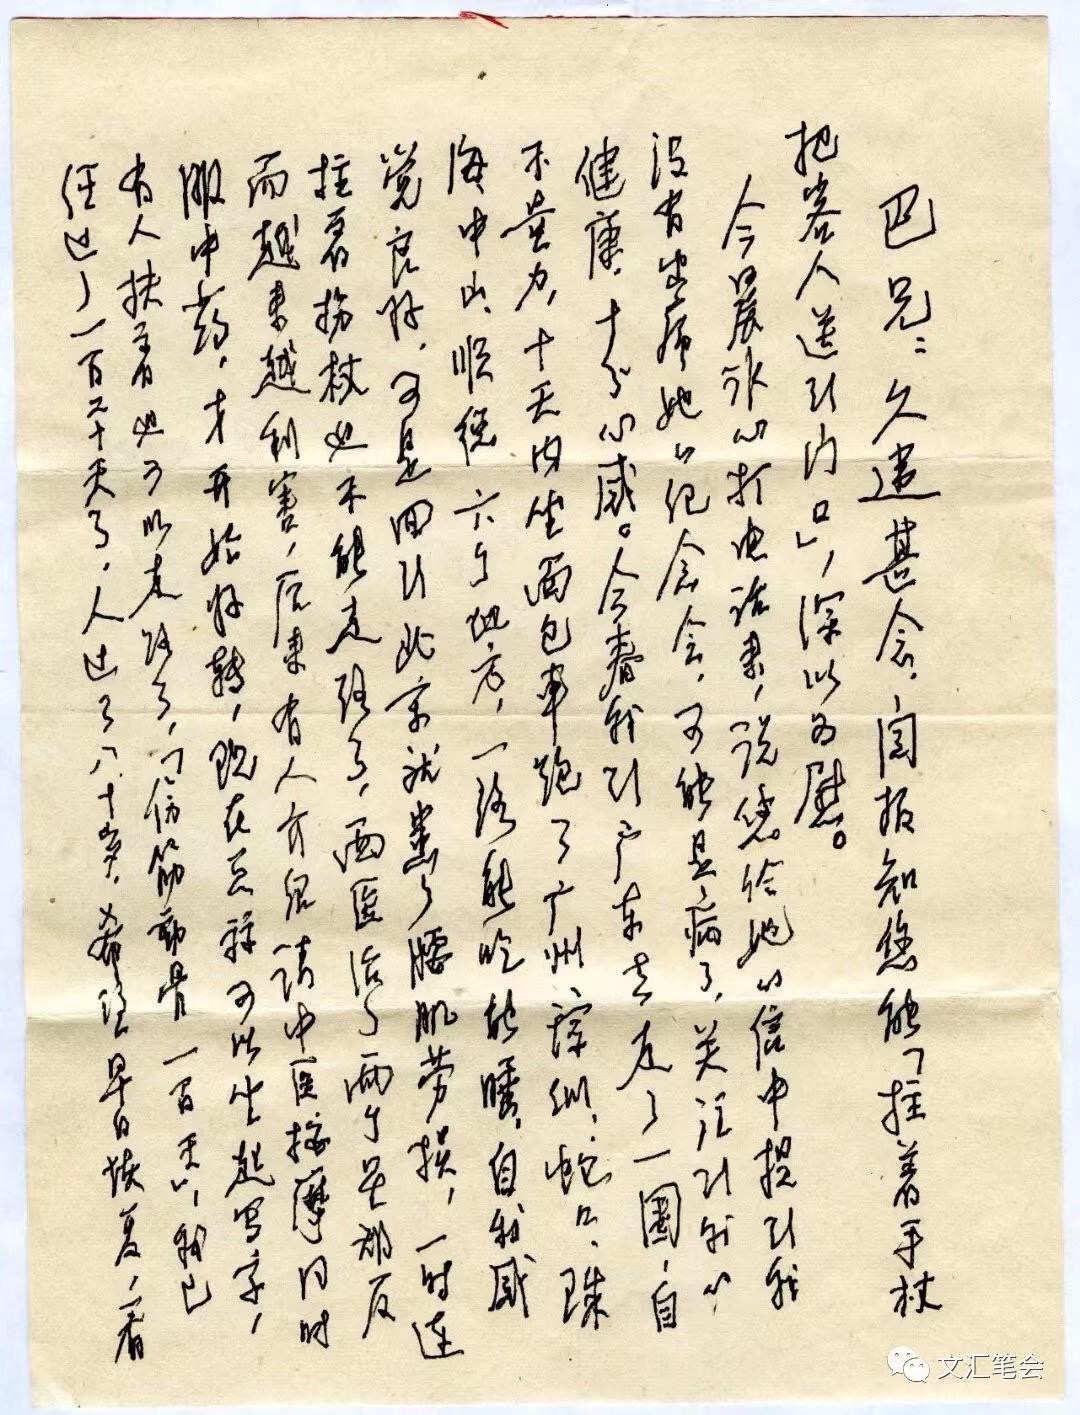 巴兄：久违甚念，阅报知您能「拄着手杖
把客人送到门口」，深以为慰。
今晨冰心打电话来，说您给她的信中提到我
没有出席她的纪念会，可能是病了，关注到我的
健康，十分心感。今春我到广东去走了一圈，自
不量力，十天内坐面包车跑了广州、深圳、蛇口、珠
海、中山、顺德六个地方，一路能吃能睡，自我感
觉良好，可是回到北京就患了腰肌劳损，一时连
拄着拐杖也不能走路了，西医治了两个星期反
而越来越利害，后来有人介绍请中医按摩同时
服中药，才开始好转，现在总算可以坐起写字，
有人扶着也可以走路了，「伤筋动骨一百天」，我已
经过了一百二十天了，人过了八十岁，希望早日恢复，看
文汇笔会